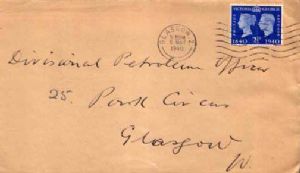 GLASGOW
1940
POSTAGE
VICTORIA GEORGE
1840 2½D 1940
Divisional Petroleum Officer
25. Park Circus
Glasgow
W.